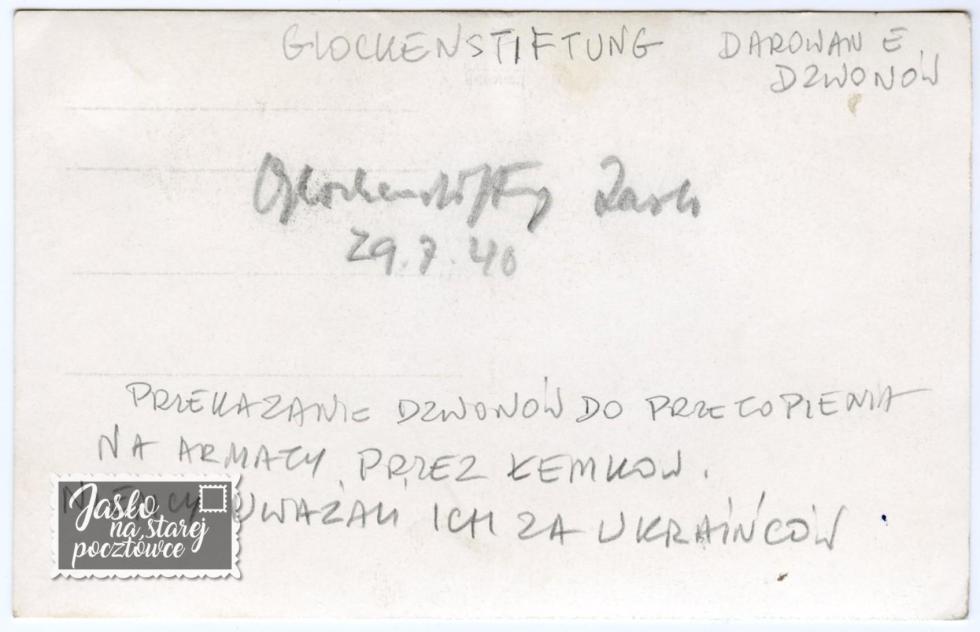 GLOCKENSTIFTUNG DAROWANIE
DZWONÓW
Glockenstiftg Jaslo
29.7.40
PRZEKAZANIE DZWONÓW DO PRZETOPIENIA
NA ARMATY PRZEZ ŁEMKÓW.
NIEMCY UWAŻALI ICH ZA UKRAIŃCÓW
Jasło
na starej
pocztówce